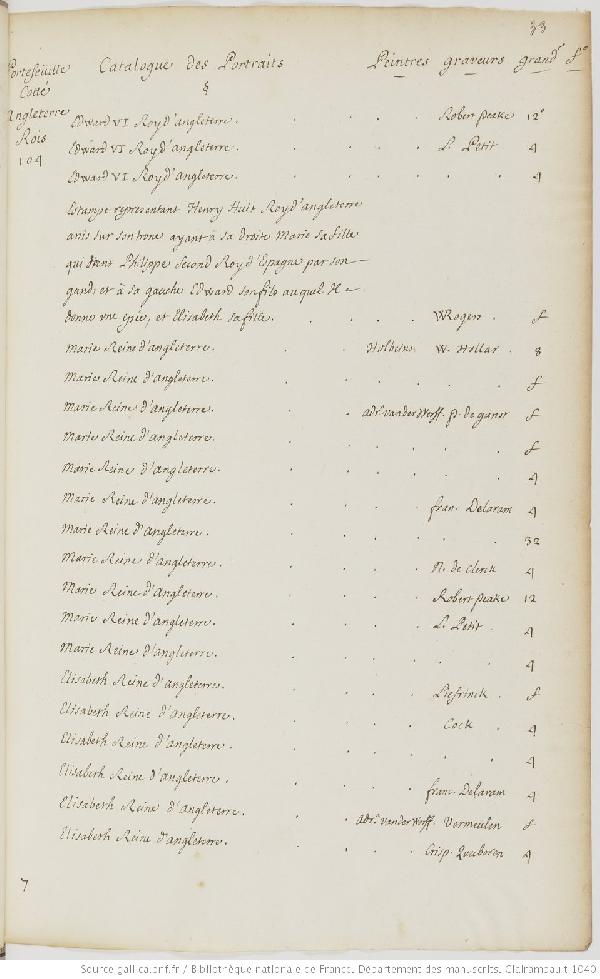 33
Portefeüille Catalogue des Portraits Peintres graveurs grandr fo
Cotté §
Angleterre
Rois
104
Edward VI Roy d'angleterre. Robert Peake 12°
Edward VI Roy d'angleterre. L. Petit 4
Edward VI Roy d'angleterre. 4
Estampe representant Henry Huit Roy d'angleterre
assis sur son trone ayant à sa droite Marie sa fille
qui tient Philippe Second Roy d'Espagne par son
gand; et à sa gauche Edward son fils auquel Il
donne une epée, et Elisabeth sa fille. W Rogers. f
Marie Reine d'angleterre. Holbeins W. Hollar. 8
Marie Reine d'angleterre. f
Marie Reine d'angleterre. adr. vander Werff. p. de gunst f
Marie Reine d'angleterre. f
Marie Reine d'angleterre. 4
Marie Reine d'angleterre. fran. Delaram 4
Marie Reine d'angleterre. 32
Marie Reine d'angleterre. N. de Clerck 4
Marie Reine d'angleterre. Robert Peake 12
Marie Reine d'angleterre. L. Petit. 4
Marie Reine d'angleterre. 4
Elisabeth Reine d'angleterre. Liefrinck. f
Elisabeth Reine d'angleterre. Cock 4
Elisabeth Reine d'angleterre. 4
Elisabeth Reine d'angleterre. franc. Delaram 4
Elisabeth Reine d'angleterre. adr. vander Werff. Vermeulen f
Elisabeth Reine d'angleterre. Crisp. Queboren 4
7
Source gallica.bnf.fr / Bibliothèque nationale de France. Département des manuscrits. Clairambault 1040